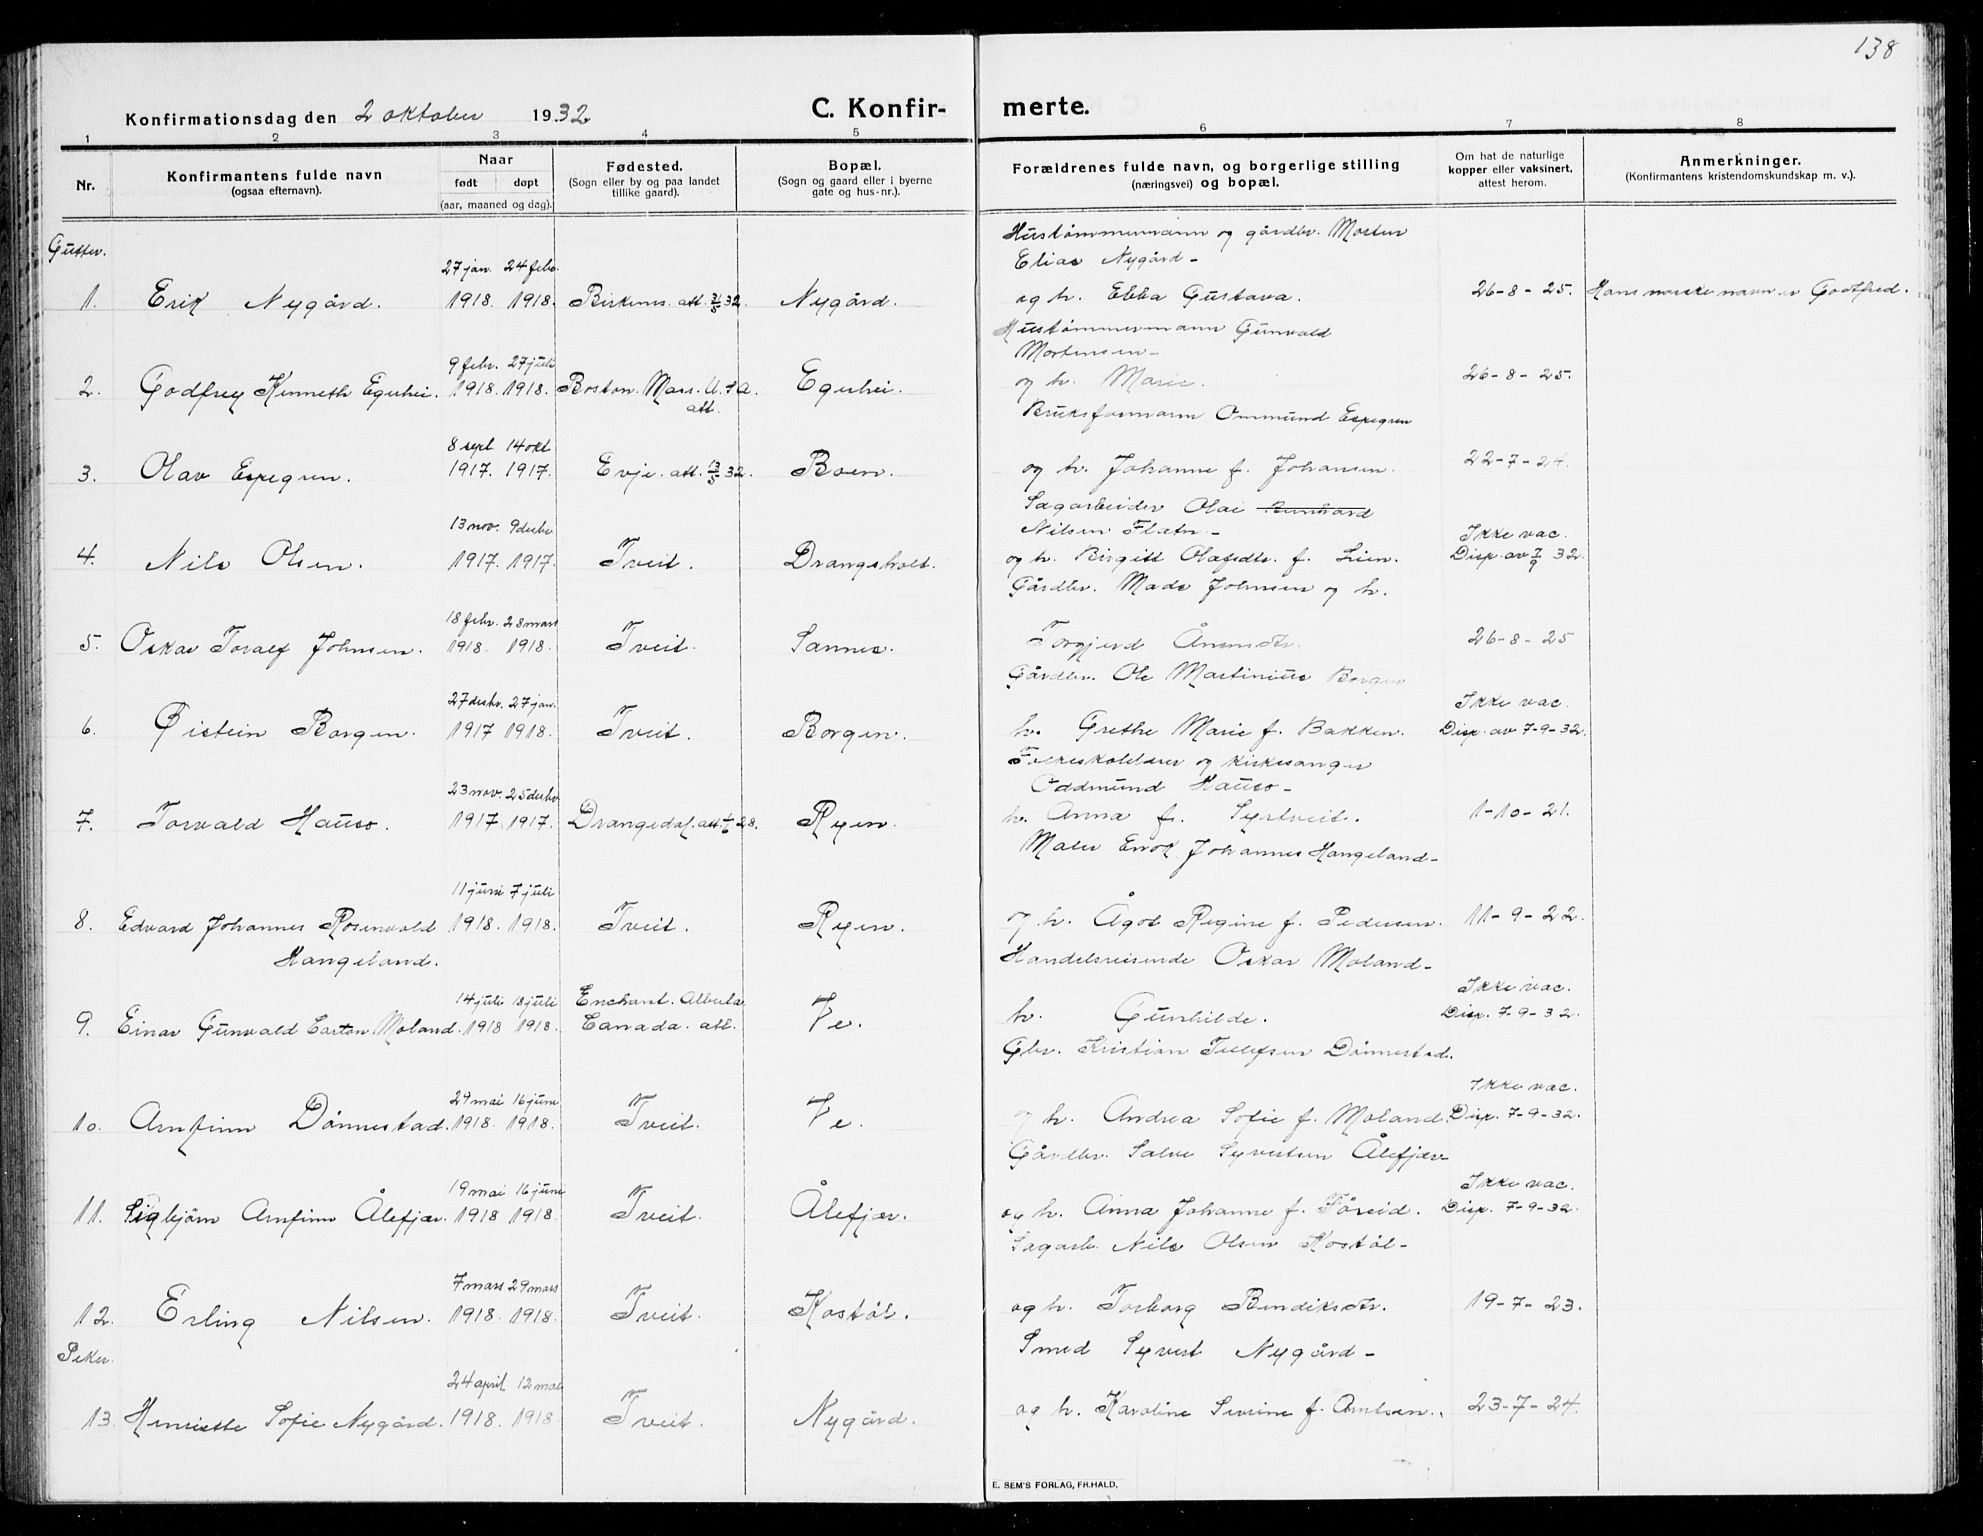 138
Konfirmationsdag den 2 oktober 1932.
C. Konfir-
merte.
1 2 3 4 5 6 7 8
Nr.
Konfirmantens fulde navn
(ogsaa efternavn).
Naar
født døpt
(aar, maaned og dag).
Fødested.
(Sogn eller by og paa landet
tillike gaard).
Bopæl.
(Sogn og gaard eller i byerne
gate og hus-nr.).
Forældrenes fulde navn, og borgerlige stilling
(næringsvei) og bopæl.
Om hat de naturlige
kopper eller vaksinert,
attest herom.
Anmerkninger.
(Konfirmantens kristendomskundskap m. v.).
Gutter.
Hustømmermann og gårdbr. Morten
Elias Nygård -
27 jan. 24 febr.
1. Erik Nygård. 1918. 1918. Birkenes. att. 31/5 32. Nygård. og h. Ebba Gustava. 26-8-25. Hans norske navn er Godtfred.
Hustømmermann Gunvald
Mortensen -
9 febr. 27 juli
2. Godfrey Kenneth Egerhei. 1918. 1918. Boston. Mass. U.S.A. Egerhei. og h. Marie. 26-8-25.
att.
Bruksformann Ommund Espegren
8 sept. 14 okt.
3. Olav Espegren. 1917. 1917. Evje. att. 13/5 32. Boen. og h. Johanne f. Johansen. 22-7-24.
Sagarbeider Olai Bernhard
Nilsen Flaten -
13 nov. 9 desbr. Ikke vac.
4. Nils Olsen. 1917. 1917. Tveit. Drangsholt. og h. Birgitt Olafsdtr. f. Lien. Disp. av 7/9 32.
Gårdbr. Mads Johnsen og h.
18 febr. 28 mars
5. Oskar Toralf Johnsen. 1918. 1918. Tveit. Sannes. Torgjerd Ånensdtr. 26-8-25
Gårdbr. Ole Martinius Borgen
27 desbr. 27 jan. Ikke vac.
6. Øistein Borgen. 1917 1918. Tveit. Borgen. h. Grethe Marie f. Bakken. Disp. av 7-9-32.
Folkeskolelærer og kirkesanger
Oddmund Hauso -
23 nov. 25 desbr.
7. Torvald Hauso. 1917. 1917. Drangedal. att. 1/6 28. Ryen. h. Anna f. Syrtveit. 1-10-21.
Maler Enok Johannes Hangeland -
11 juni 7 juli
8. Edvard Johannes Rosenvald 1918. 1918. Tveit. Ryen. og h. Ågot Regine f. Pedersen. 11-9-22.
Hangeland.
Handelsreisende Oskar Moland -
14 juli 18 juli Enchant. Alberta Ikke vac.
9. Einar Gunvald Carton Moland. 1918 1918. Canada. att. Ve. h. Gunhilde. Disp. 7-9-32.
Gbr. Kristian Tellefsen Dønnestad.
29 mai 16 juni Ikke vac.
10. Arnfinn Dønnestad. 1918. 1918. Tveit. Ve. og h. Andrea Sofie f. Moland. Disp. 7-9-32.
Gårdbr. Salve Syvertsen Ålefjær -
19 mai 16 juni Ikke vac.
11. Sigbjørn Arnfinn Ålefjær. 1918 1918. Tveit. Ålefjær. og h. Anna Johanne f. Føreid. Disp. 7-9-32.
Sagarb. Nils Olsen Kostøl -
7 mars 29 mars
12. Erling Nilsen. 1918. 1918. Tveit. Kostøl. og h. Torborg Bendiksdtr. 19-7-23.
Piker.
Smed Syvert Nygård -
24 april 12 mai
13. Henriette Sofie Nygård. 1918. 1918. Tveit. Nygård. og h. Karoline Severine f. Arntsen. 23-7-24.
E. SEM'S FORLAG, FR.HALD.